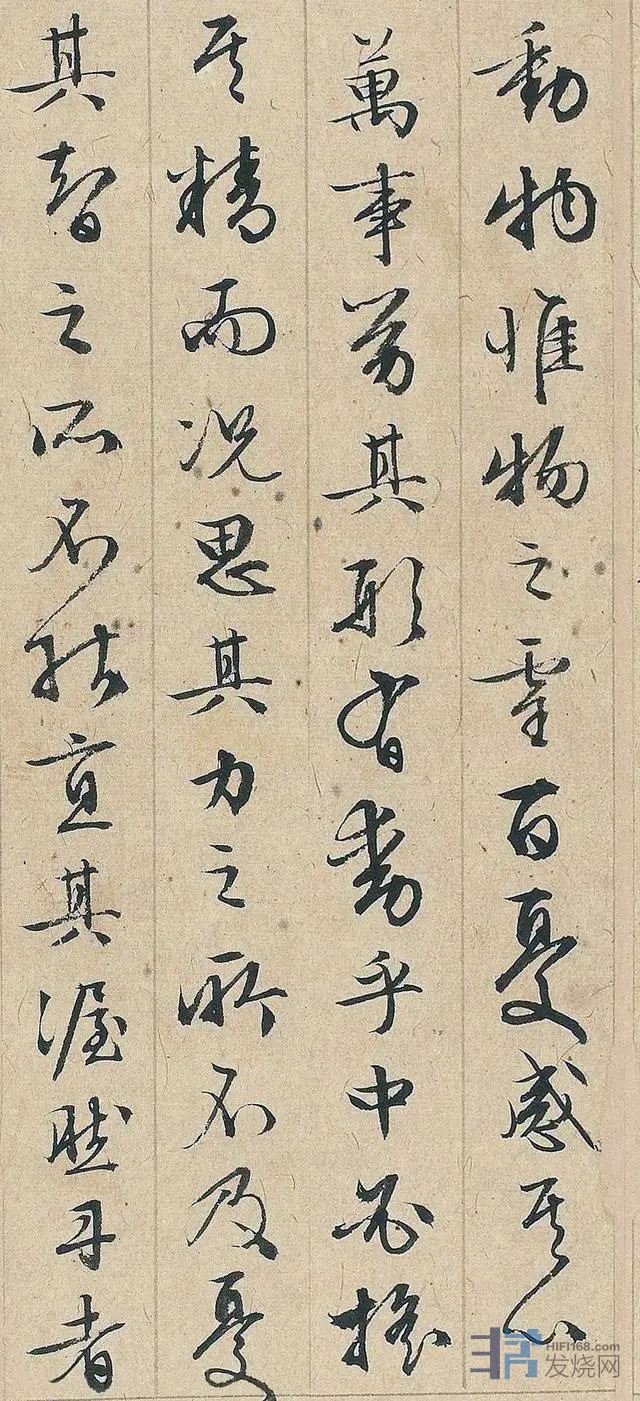 動物惟物之靈百憂感其心
萬事勞其形有動乎中必搖
其精而況思其力之所不及憂
其智之所不能宜其渥然丹者
HIFI168.com
发烧网